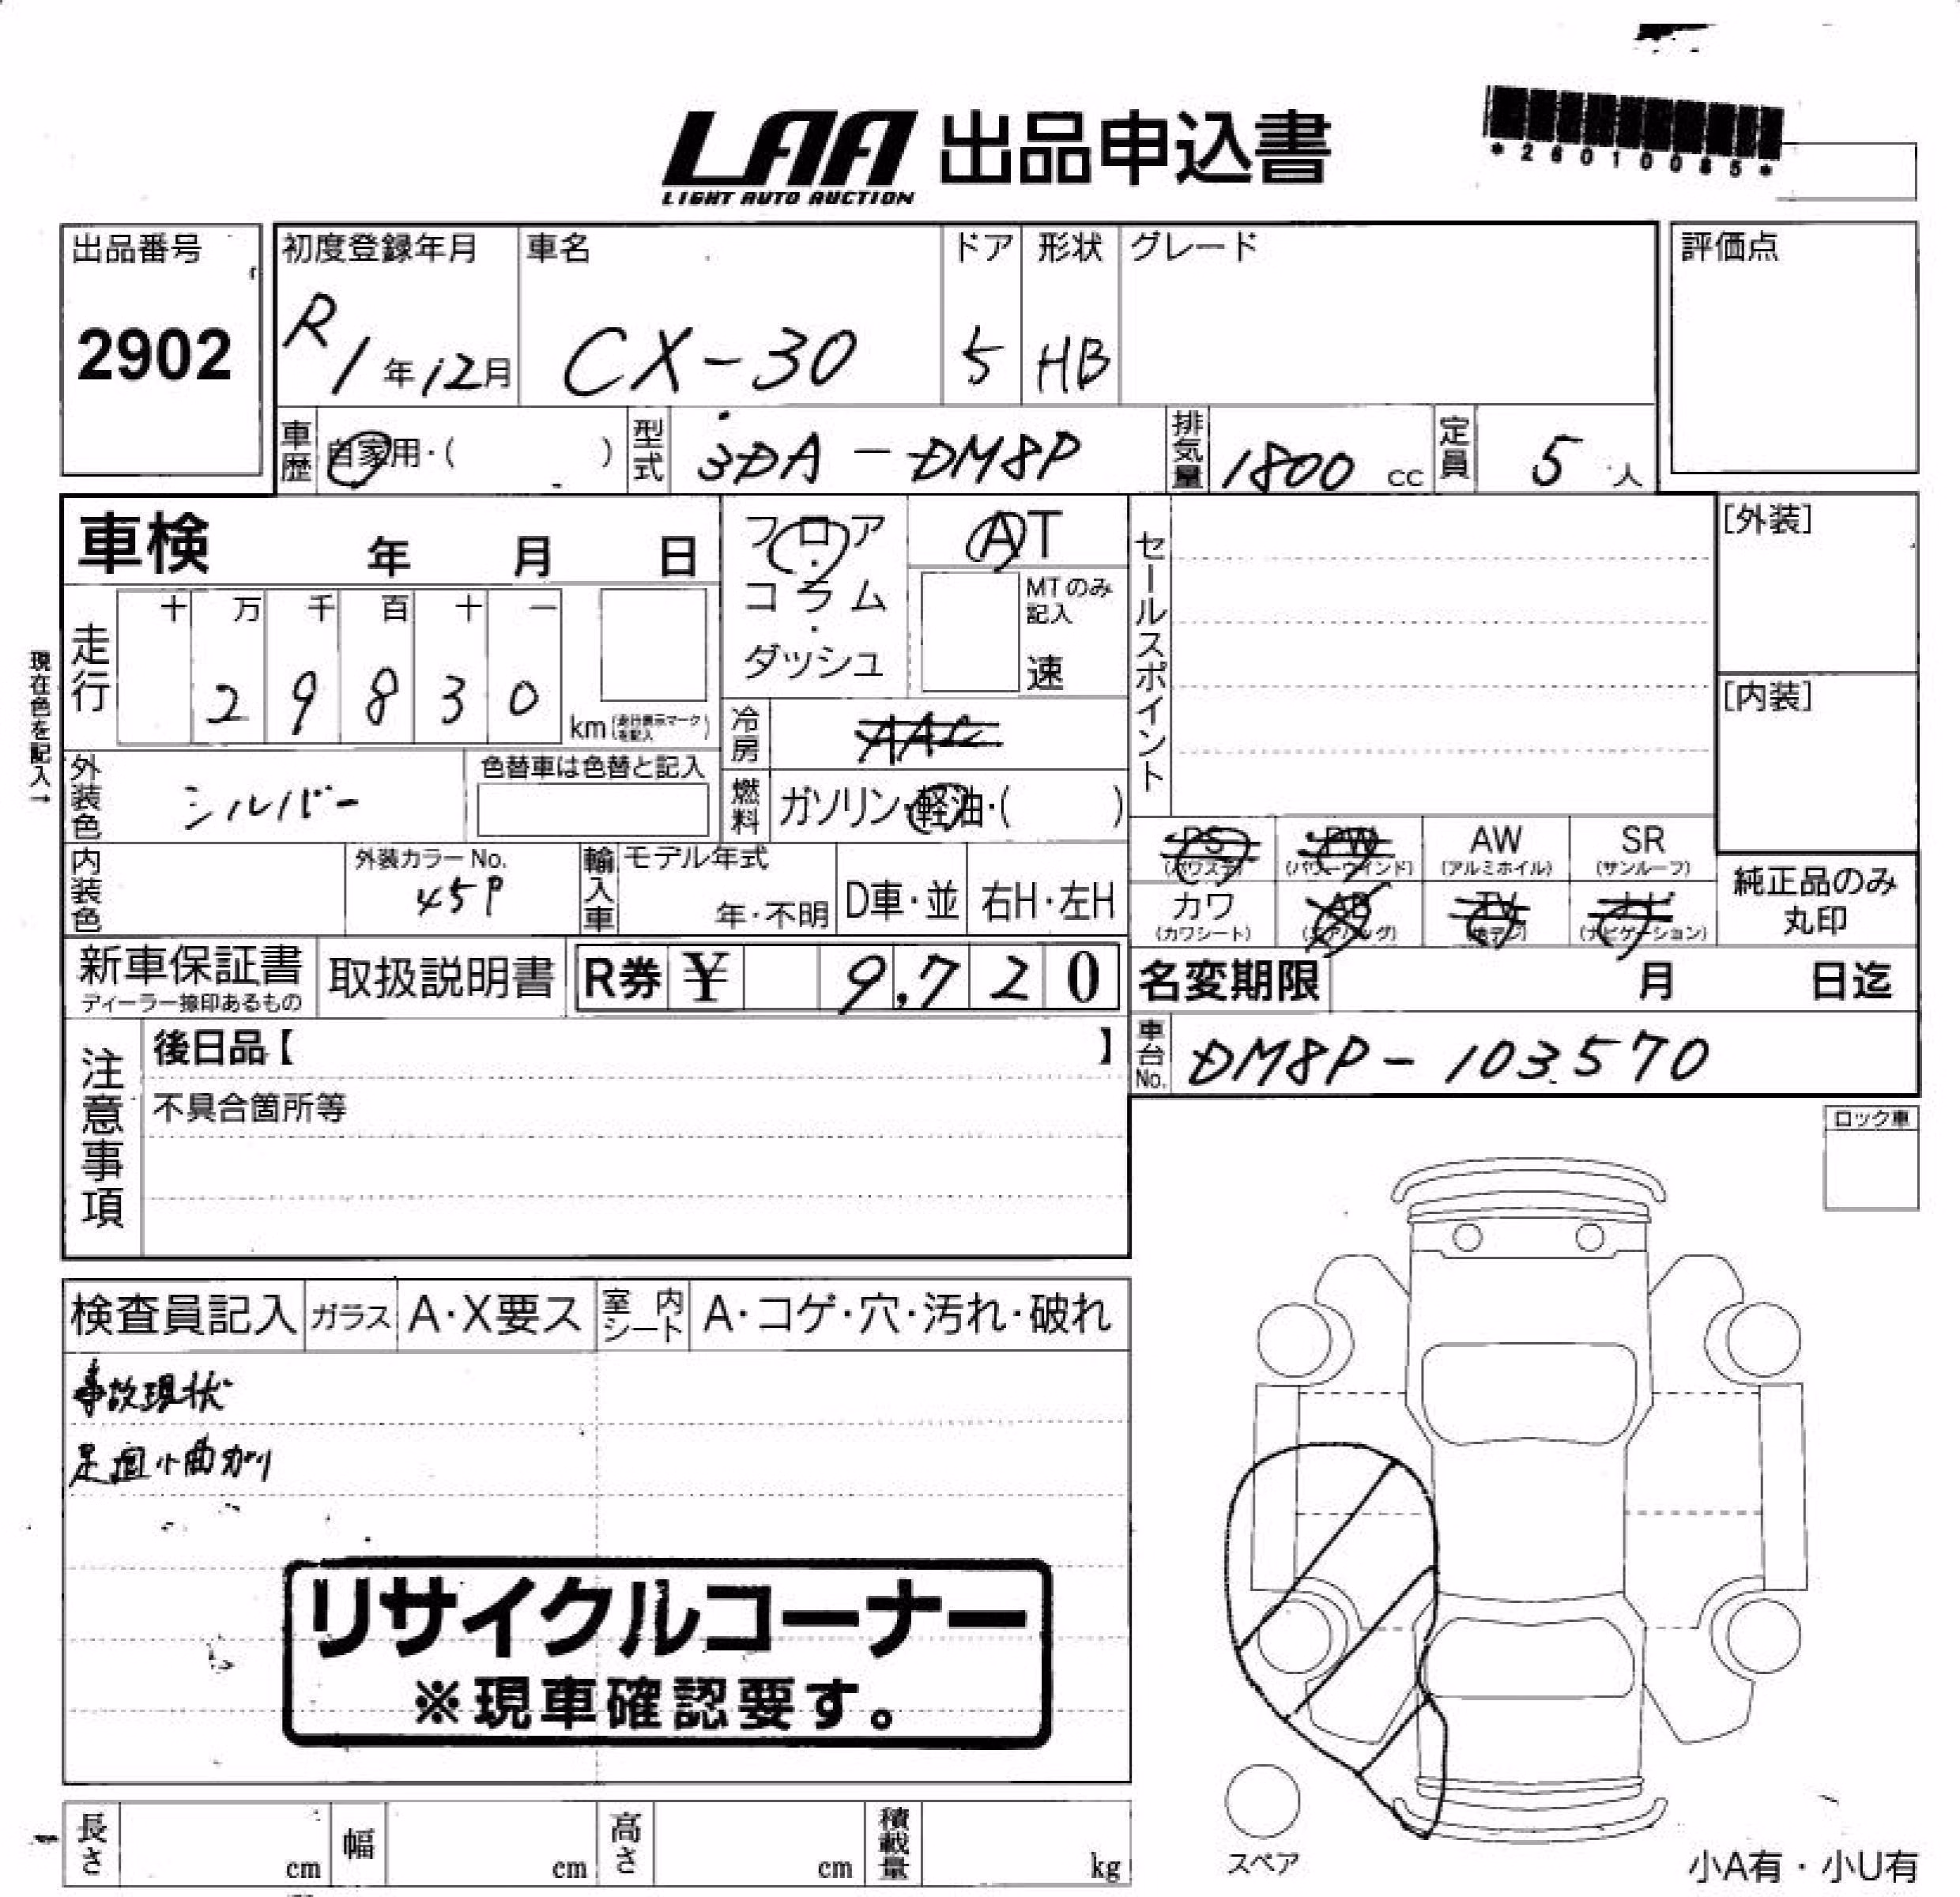 LAA 出品申込書
LIGHT AUTO AUCTION
*26010085*
出品番号 初度登録年月 車名 ドア 形状 グレード 評価点
2902 R1年12月 CX-30 5 HB
車歴 自家用・( ) 型式 3DA-DM8P 排気量 1800 cc 定員 5 人
車検 年 月 日 フロア・コラム・ダッシュ AT セールスポイント [外装]
MTのみ記入
速
現在色を記入→
走行 十 万 千 百 十 一
2 9 8 3 0
km (走行表示マークを記入)
[内装]
冷房 AAC
外装色 シルバー 色替車は色替と記入
燃料 ガソリン・軽油・( )
PS (パワステ) PW (パワーウインド) AW (アルミホイル) SR (サンルーフ)
内装色 外装カラーNo. 45P 輸入車 モデル年式 年・不明 D車・並 右H・左H
カワ (カワシート) AB (エアバッグ) TV (地デジ) ナビ (ナビゲーション)
純正品のみ
丸印
新車保証書 取扱説明書 R券 ¥ 9,720 名変期限 月 日迄
ディーラー捺印あるもの
注意事項 後日品【 】 車台No. DM8P-103570
不具合箇所等
ロック車
検査員記入 ガラス A・X要ス 室内シート A・コゲ・穴・汚れ・破れ
事故現状
足回小曲がり
リサイクルコーナー
※現車確認要す。
スペア
長さ cm 幅 cm 高さ cm 積載量 kg
小A有・小U有